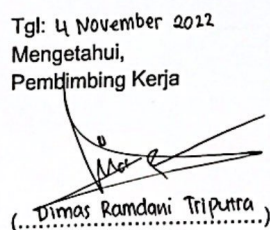 Tgl: 4 November 2022
Mengetahui,
Pembimbing Kerja
(. Dimas Ramdani Triputra .)